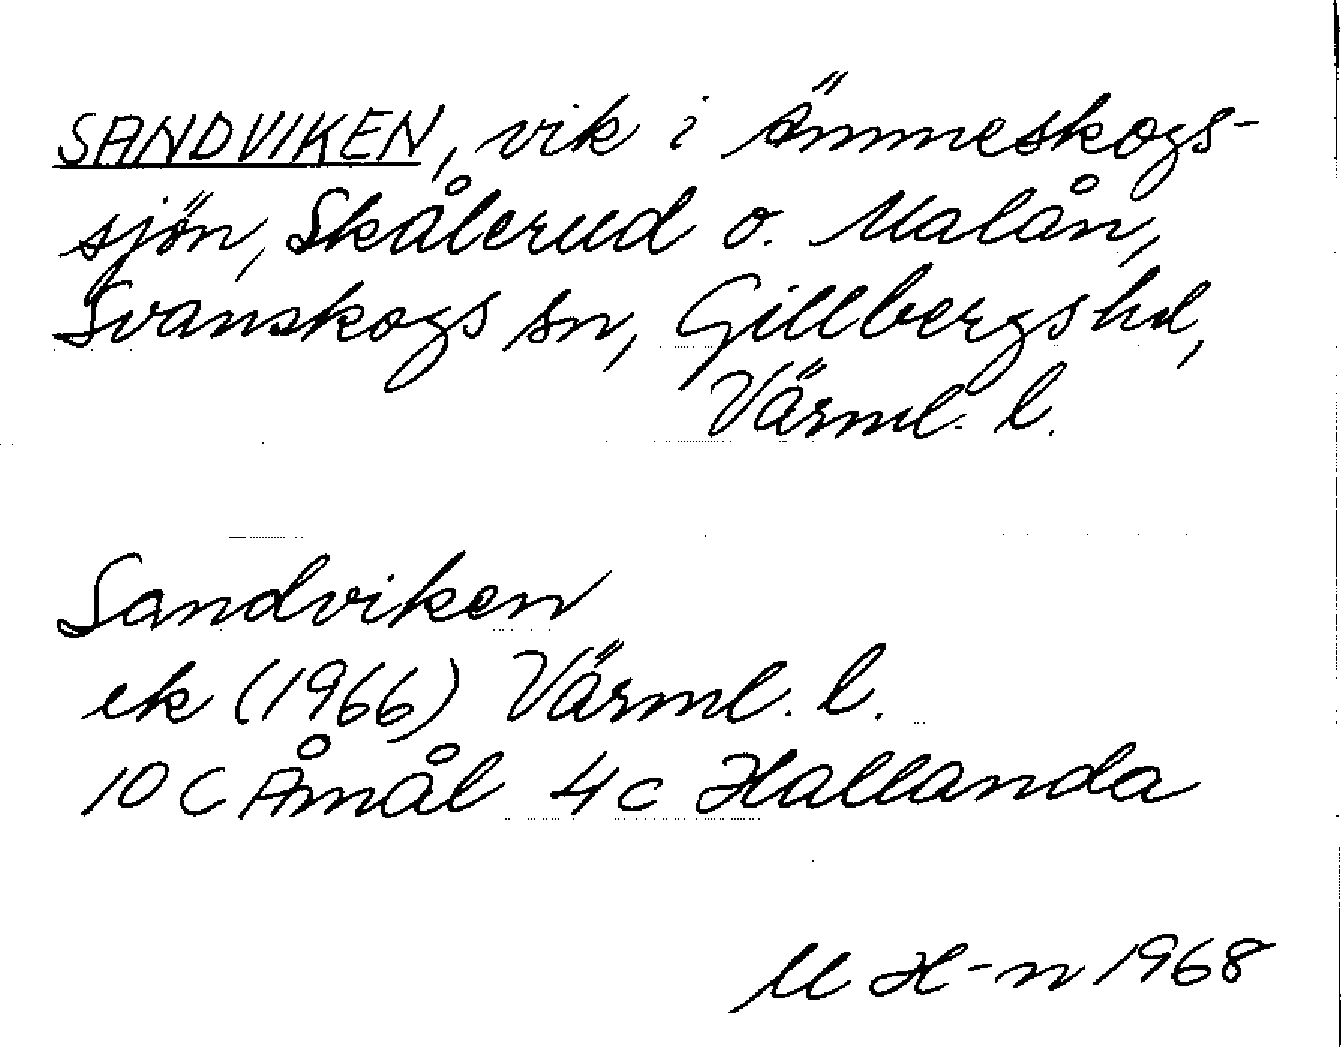 SANDVIKEN, vik i Ämmeskogs-
sjön, Skålerud o. Malån,
Svanskogs sn, Gillbergs hd,
Värml. l.
Sandviken
ek (1966) Värml. l.
10 C Åmål 4c Hallanda
M H-n 1968